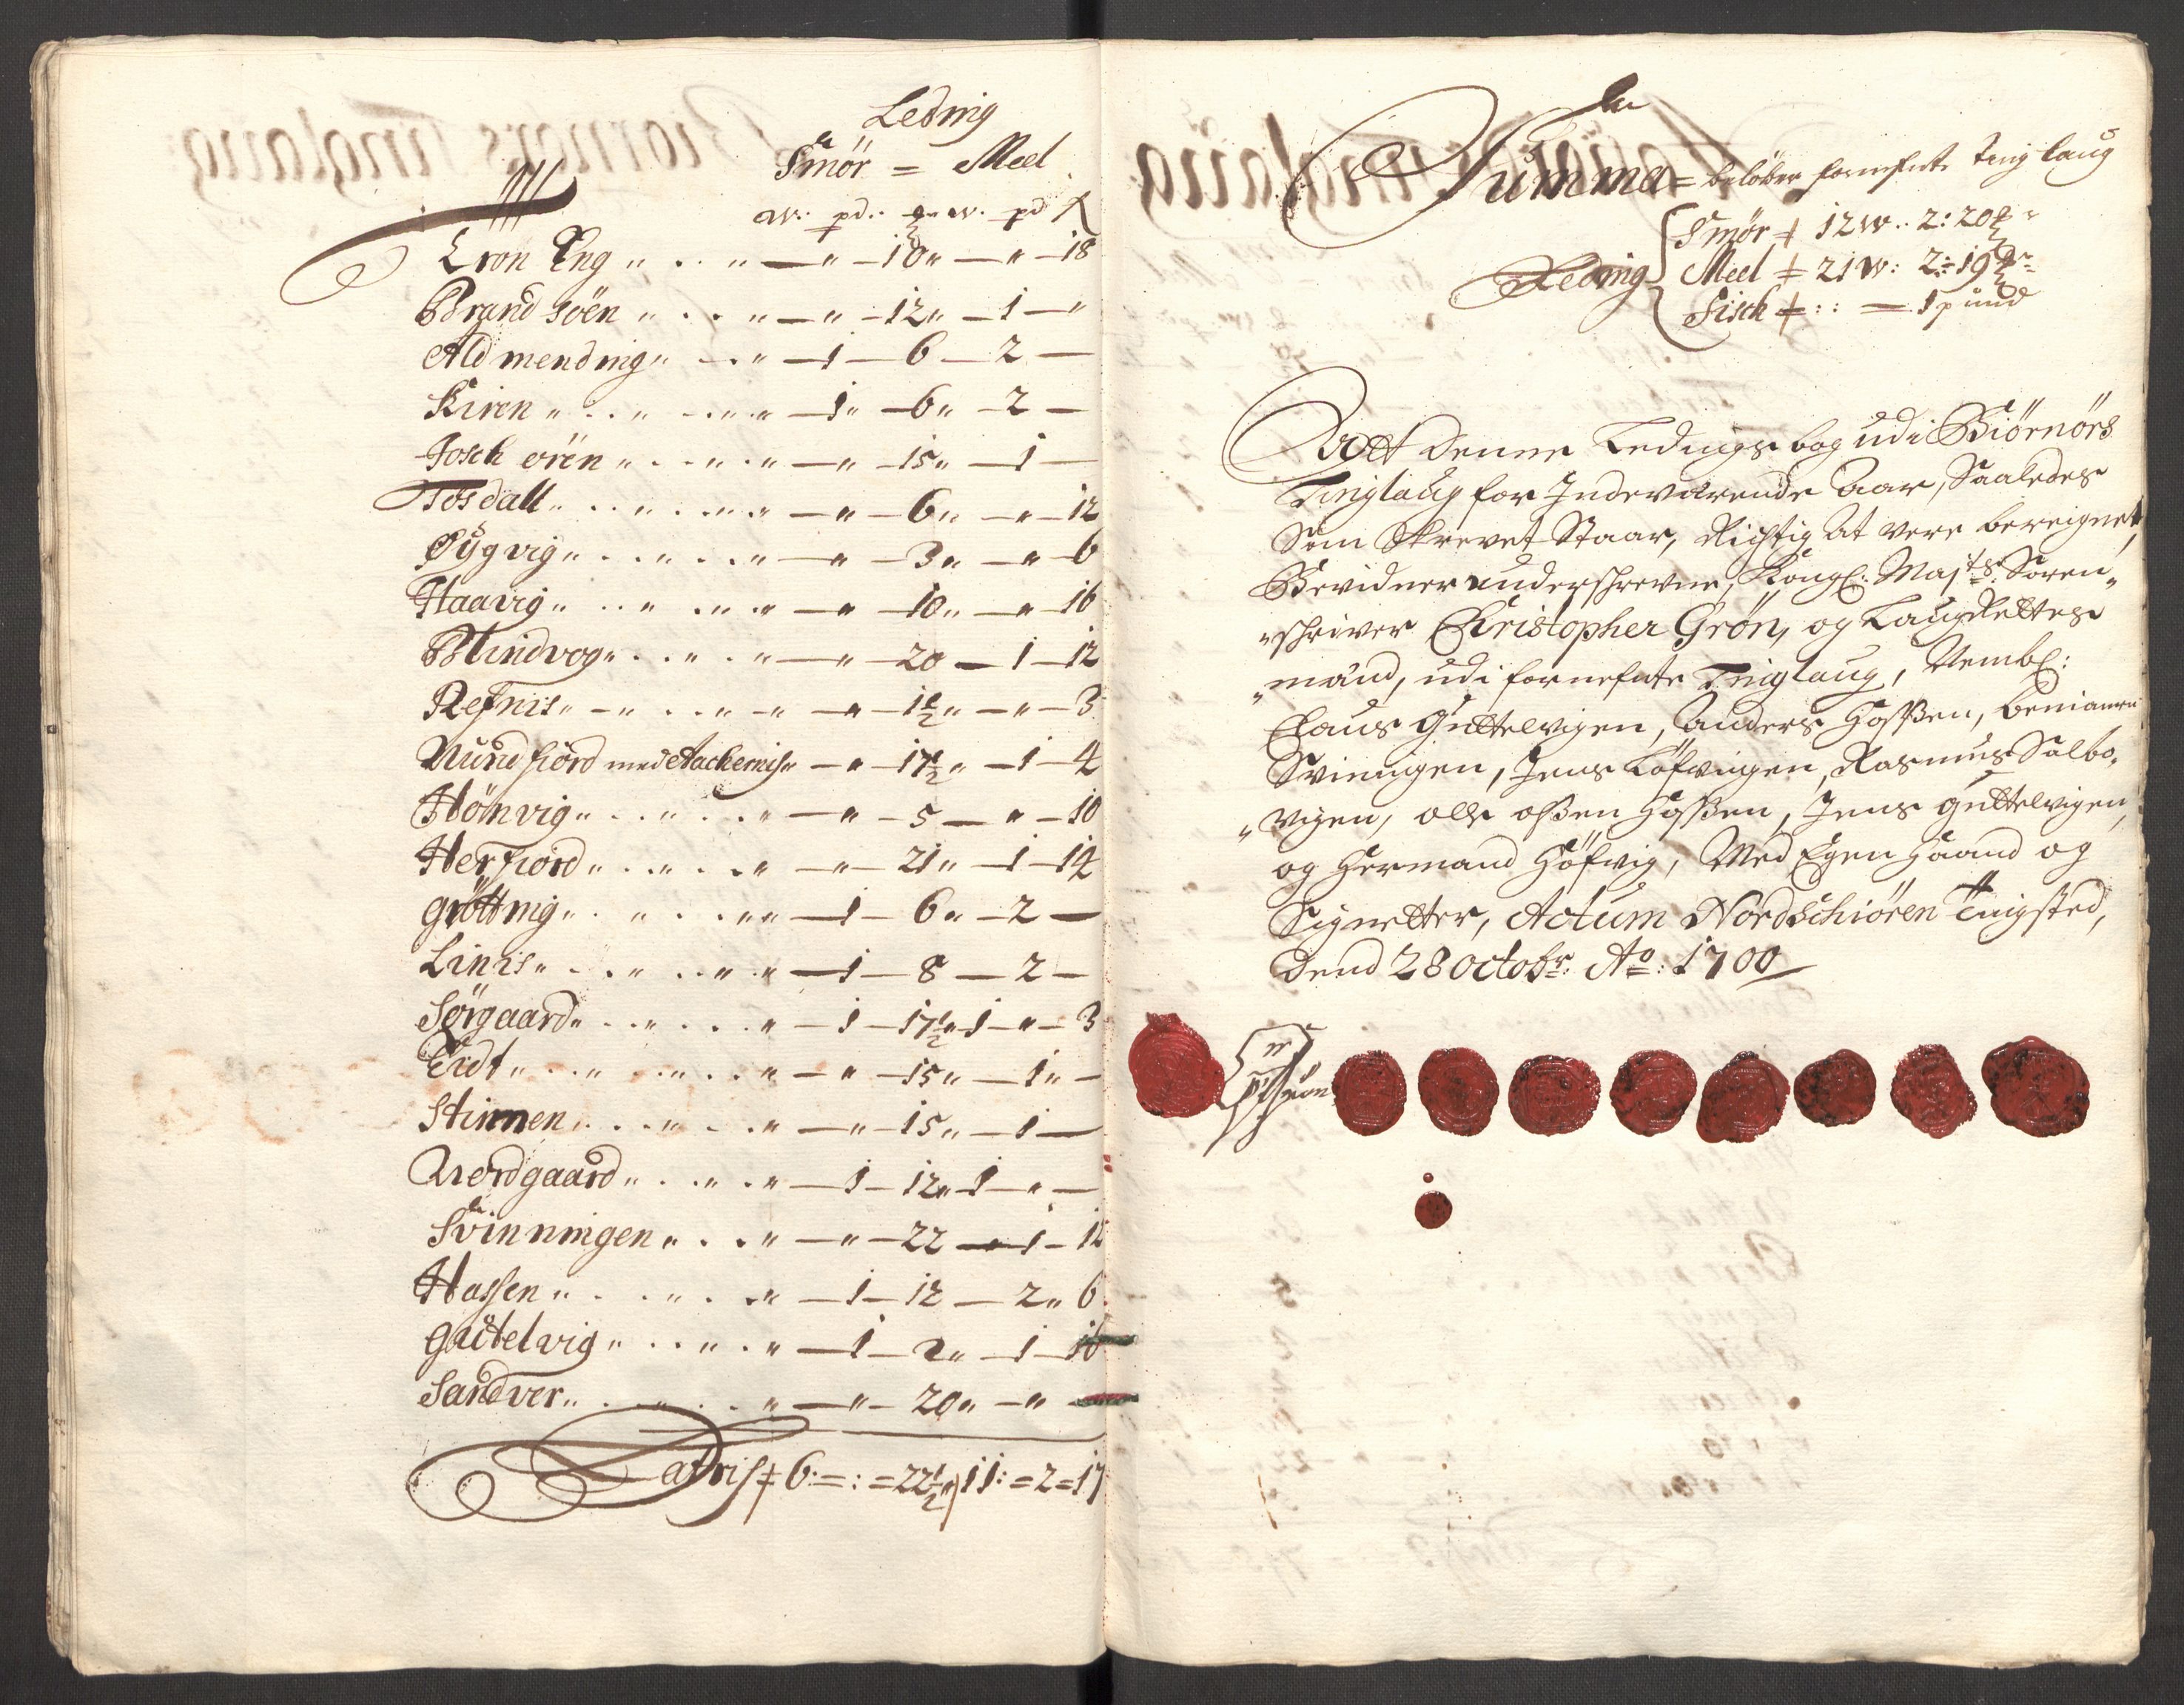 Leding
Smör = Meel
w: pd: w. pd
Eron Eng " . . " — " — 10 " — " — 18
Brandsöen " . . " — " — 12 " — 1 — "
Aldmending " . . " — 1 — 6 — 2 —
Kiren " . . " . . " " — 1 " — 6 " — 2 —
Josch ören " . . " . " — " — 15 " — 1 —
Tosdall " . . " . . " . " — " — 6 " — " — 12
Sÿgvig " . . " . . " — " — 3 " — " — 6
Haavig " . . " . . " . " — " — 10 " — " — 16
Blindvog " . . " . " — " — 20 — 1 — 12
Refnis " — " . . " . " — " — 1½ " — " — 3
Nürdfiord med Aachernis " — " — 17½ " — 1 — 4
Hönvig " . . " . . " — " — 5 — " — 10
Herfiord " . . " . . " — " — 21 " — 1 — 14
Gröttnig " . . " . . " " — 1 — 6 " — 2 —
Linis " . . " . . " . " — 1 — 8 — 2 —
Sörgaard " . . " . . " — 1 — 17½ " 1 — " — 3
Eidt " . . " . . " . . " — " — 15 " — 1 " —
Stinnen " . . " . . " — " — 15 " — 1 —
Nordgaard " . . " . " — 1 — 12 " 1 — " —
Svinningen " . . " — " — 22 — 1 — 12
Hassen " . . " . . " — 1 — 12 — 2 " 6
Gütelvig " . . " . " — 1 — 2 " — 1 — 16
Sandver " . . " . . " — " — 20 " — "
Latris ‡ 6: = : = 22½ " 11: = 2 = 17
Summa = belöber fornefnte Ting laug
Smör ‡ 12 w: 2: 20
Leding Meel ‡ 21 w: 2: 19
Fisch ‡ : : — 1 pund
Att denne Ledings bog udi Biörnörs
Tinglaug for Indeværende Aar, Saaledes
Som Skrevet Staar, Rigtig at vere bereignet,
Bevidner underschrevne, Kongl: Majts: Soren„
„schriver Christopher Grön, og Laugrettes
„mænd, udi fornefnte Tinglaug, Nembl:
Claus Guttelvigen, Anders Hassen, Beniamin
Svinnigen, Jens Höfvigen, Rasmus Salbo„
„vigen, olle olsen Hassen, Jens Guttelvigen,
og Hermand Höfvig, Med Egen Haand og
Signetter, Actum Nordschiören Tingsted,
Dend 28 octobr: Ao: 1700